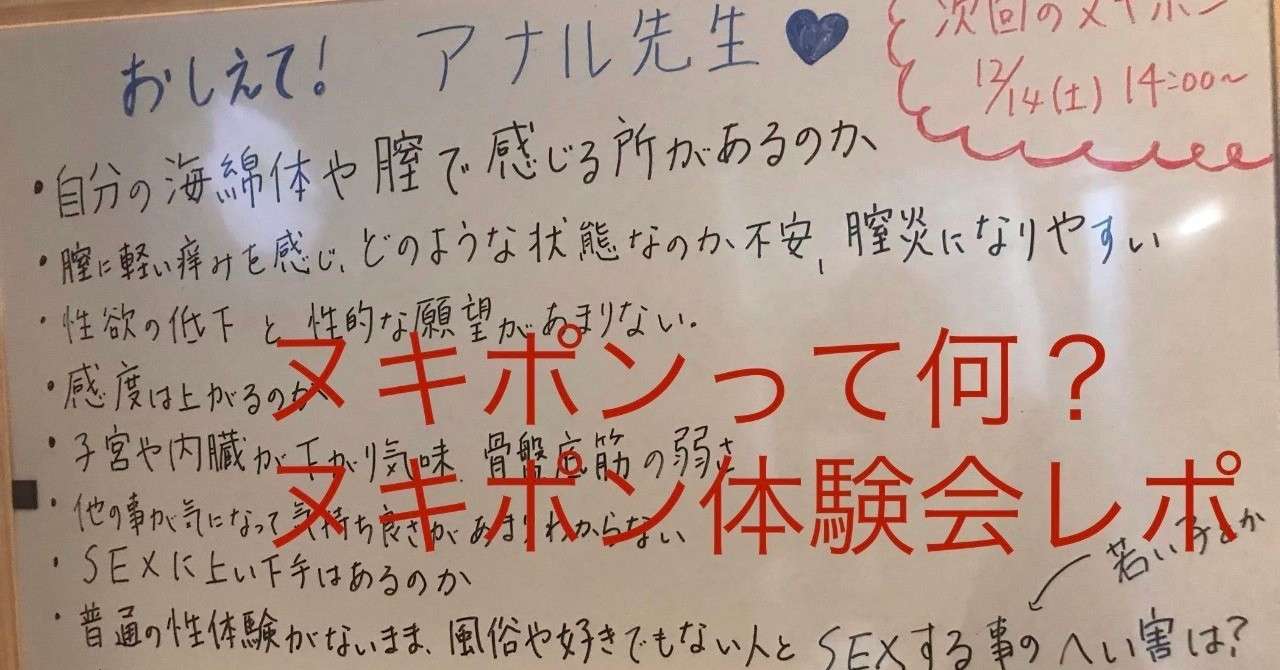 おしえて! アナル先生♥
次回のヌキポン
12/14(土) 14:00～
・自分の海綿体や膣で感じる所があるのか、
・膣に軽い痒みを感じ、どのような状態なのか不安、膣炎になりやすい
・性欲の低下と性的な願望があまりない。
・感度は上がるのか
ヌキポンって何？
・子宮や内臓が下がり気味、骨盤底筋の弱さ
ヌキポン体験会レポ
・他の事が気になって気持ち良さがあまりわからない
・SEXに上い下手はあるのか
若い子とか
・普通の性体験がないまま、風俗や好きでもない人とSEXする事のへい害は?